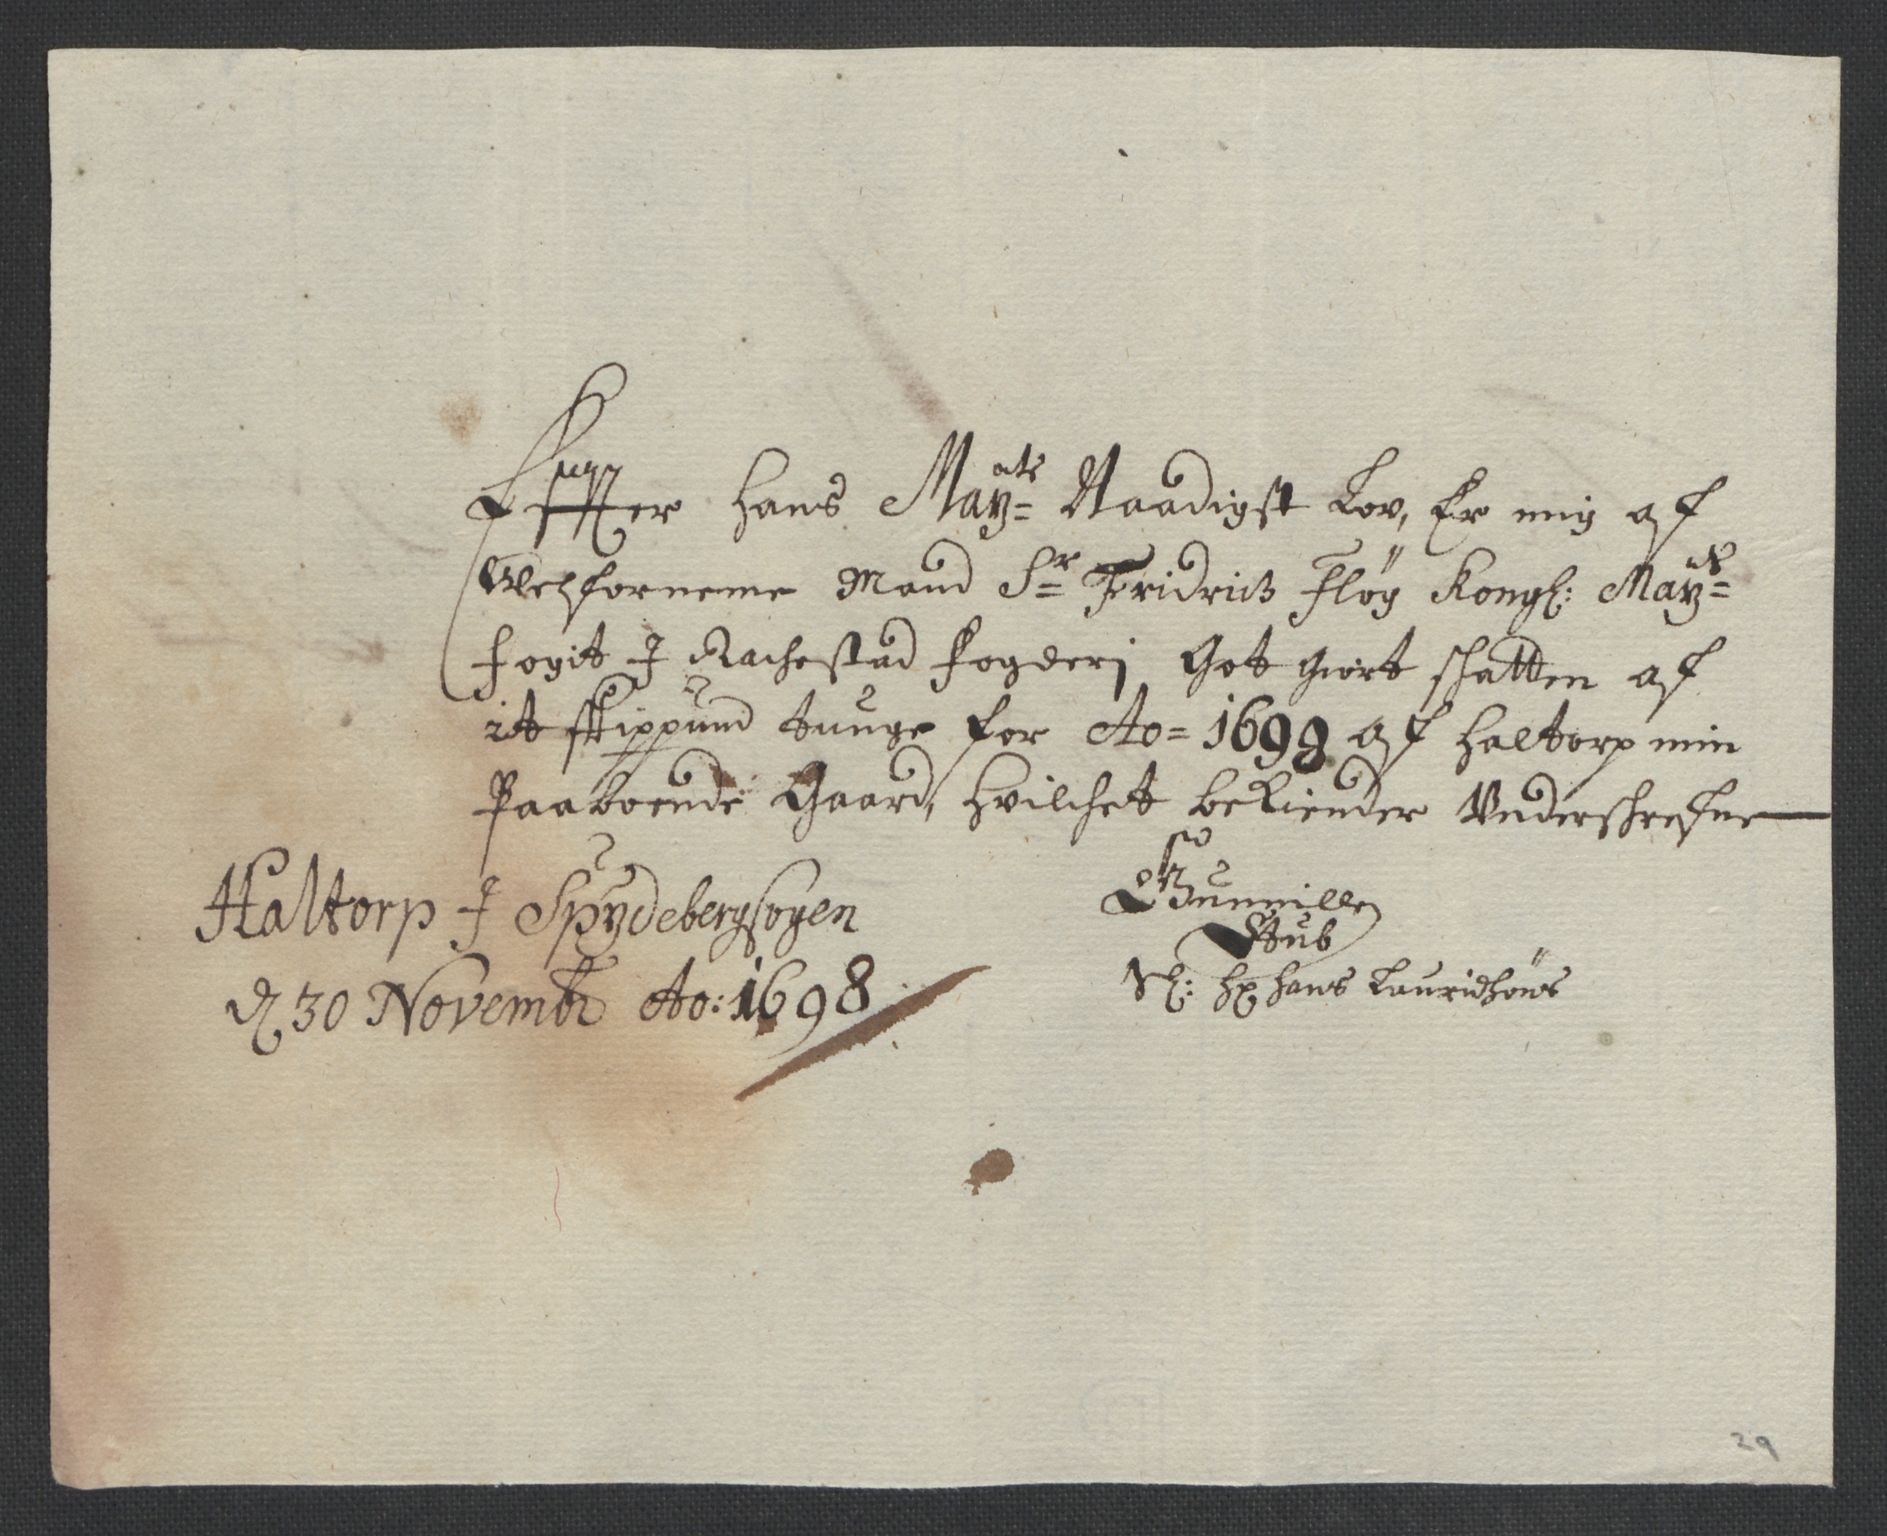 Effter Hans May:ts Naadigst Lov, Er mig af
Welfornemme Mand Sr Fridrich Fløg Kongl: May:ts
Fogit I Rachestad Fogderj Got Giort schatten af
it skippund tunge for Ao= 1698 af Haltorp min
Paaboende Gaard, Hvilchet bekiender Underschrefne
Haltorp I Spydebergsogen
d 30 Novembr Ao: 1698
Gunnille
Stub
Sl: Hr Hans Lauridsøns
29